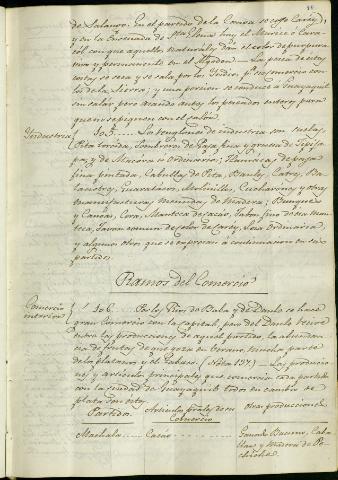 de Salango. En el partido de la Canoa se coge Carey,
y en la Ensenada de Sta. Elena hay el Murice o Cara-
col con que aquellos naturales dan el color de purpura
viva y permanente en el Algodon. La pesca de estas
costas se seca y se sala por los Indios pa. su comercio con
los de la Sierra; y una porcion se conduce a Guayaquil
sin salar pero atando antes los pescados enteros para
que no se peguen con el calor.
Industria
105. Los renglones de industria son suelas,
Pita torcida, Sombreros de Paja fina y gruesa de Jipija-
pa, y de Mocora u ordinarios; Hamacas de paja
fina pintada, Cabullas de Pita, Baules, Catres, Ba-
laustres, Molinillos, Cucharones y otras
manufacturas menudas de Madera; Buques
y Canoas, Cera, Manteca de Cacao, Jabon fino de esta man-
teca, Jabon comun de color de Carey, Losa ordinaria,
y algunos otros que se expresan a continuacion en sus
partidos.
Ramos del Comercio
Comercio
interior
106. Por los Rios de Baba y de Daule se hace
gran Comercio con la Capital, pero del Daule
entre las producciones de aquel partido, la abundan-
cia de frutas de que goza en Verano, mucha parte
de los platanos y el Tabaco (Nota 12ª.) Las produccio-
nes y articulos principales que comercia cada partido
con la ciudad de Guayaquil todos en cambio de
plata son estos
Partidos. Articulos prales. de su Comercio Otras producciones
Machala Cacao Ganado Bacuno, Caba-
llar y Madera de Pe-
chiche